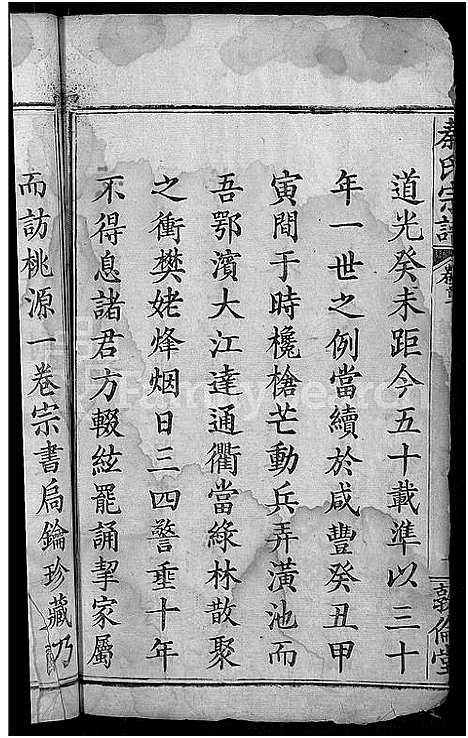 秦氏宗譜
卷首
彝倫堂
道光癸未距今五十載準以三十
年一世之例當續於咸豐癸丑甲
寅間于時欃槍芒動兵弄潢池而
吾鄂濱大江達通衢當綠林散聚
之衝樊姥烽烟日三四警垂十年
不得息諸君方輟絃罷誦挈家屬
而訪桃源一卷宗書扄鑰珍藏乃